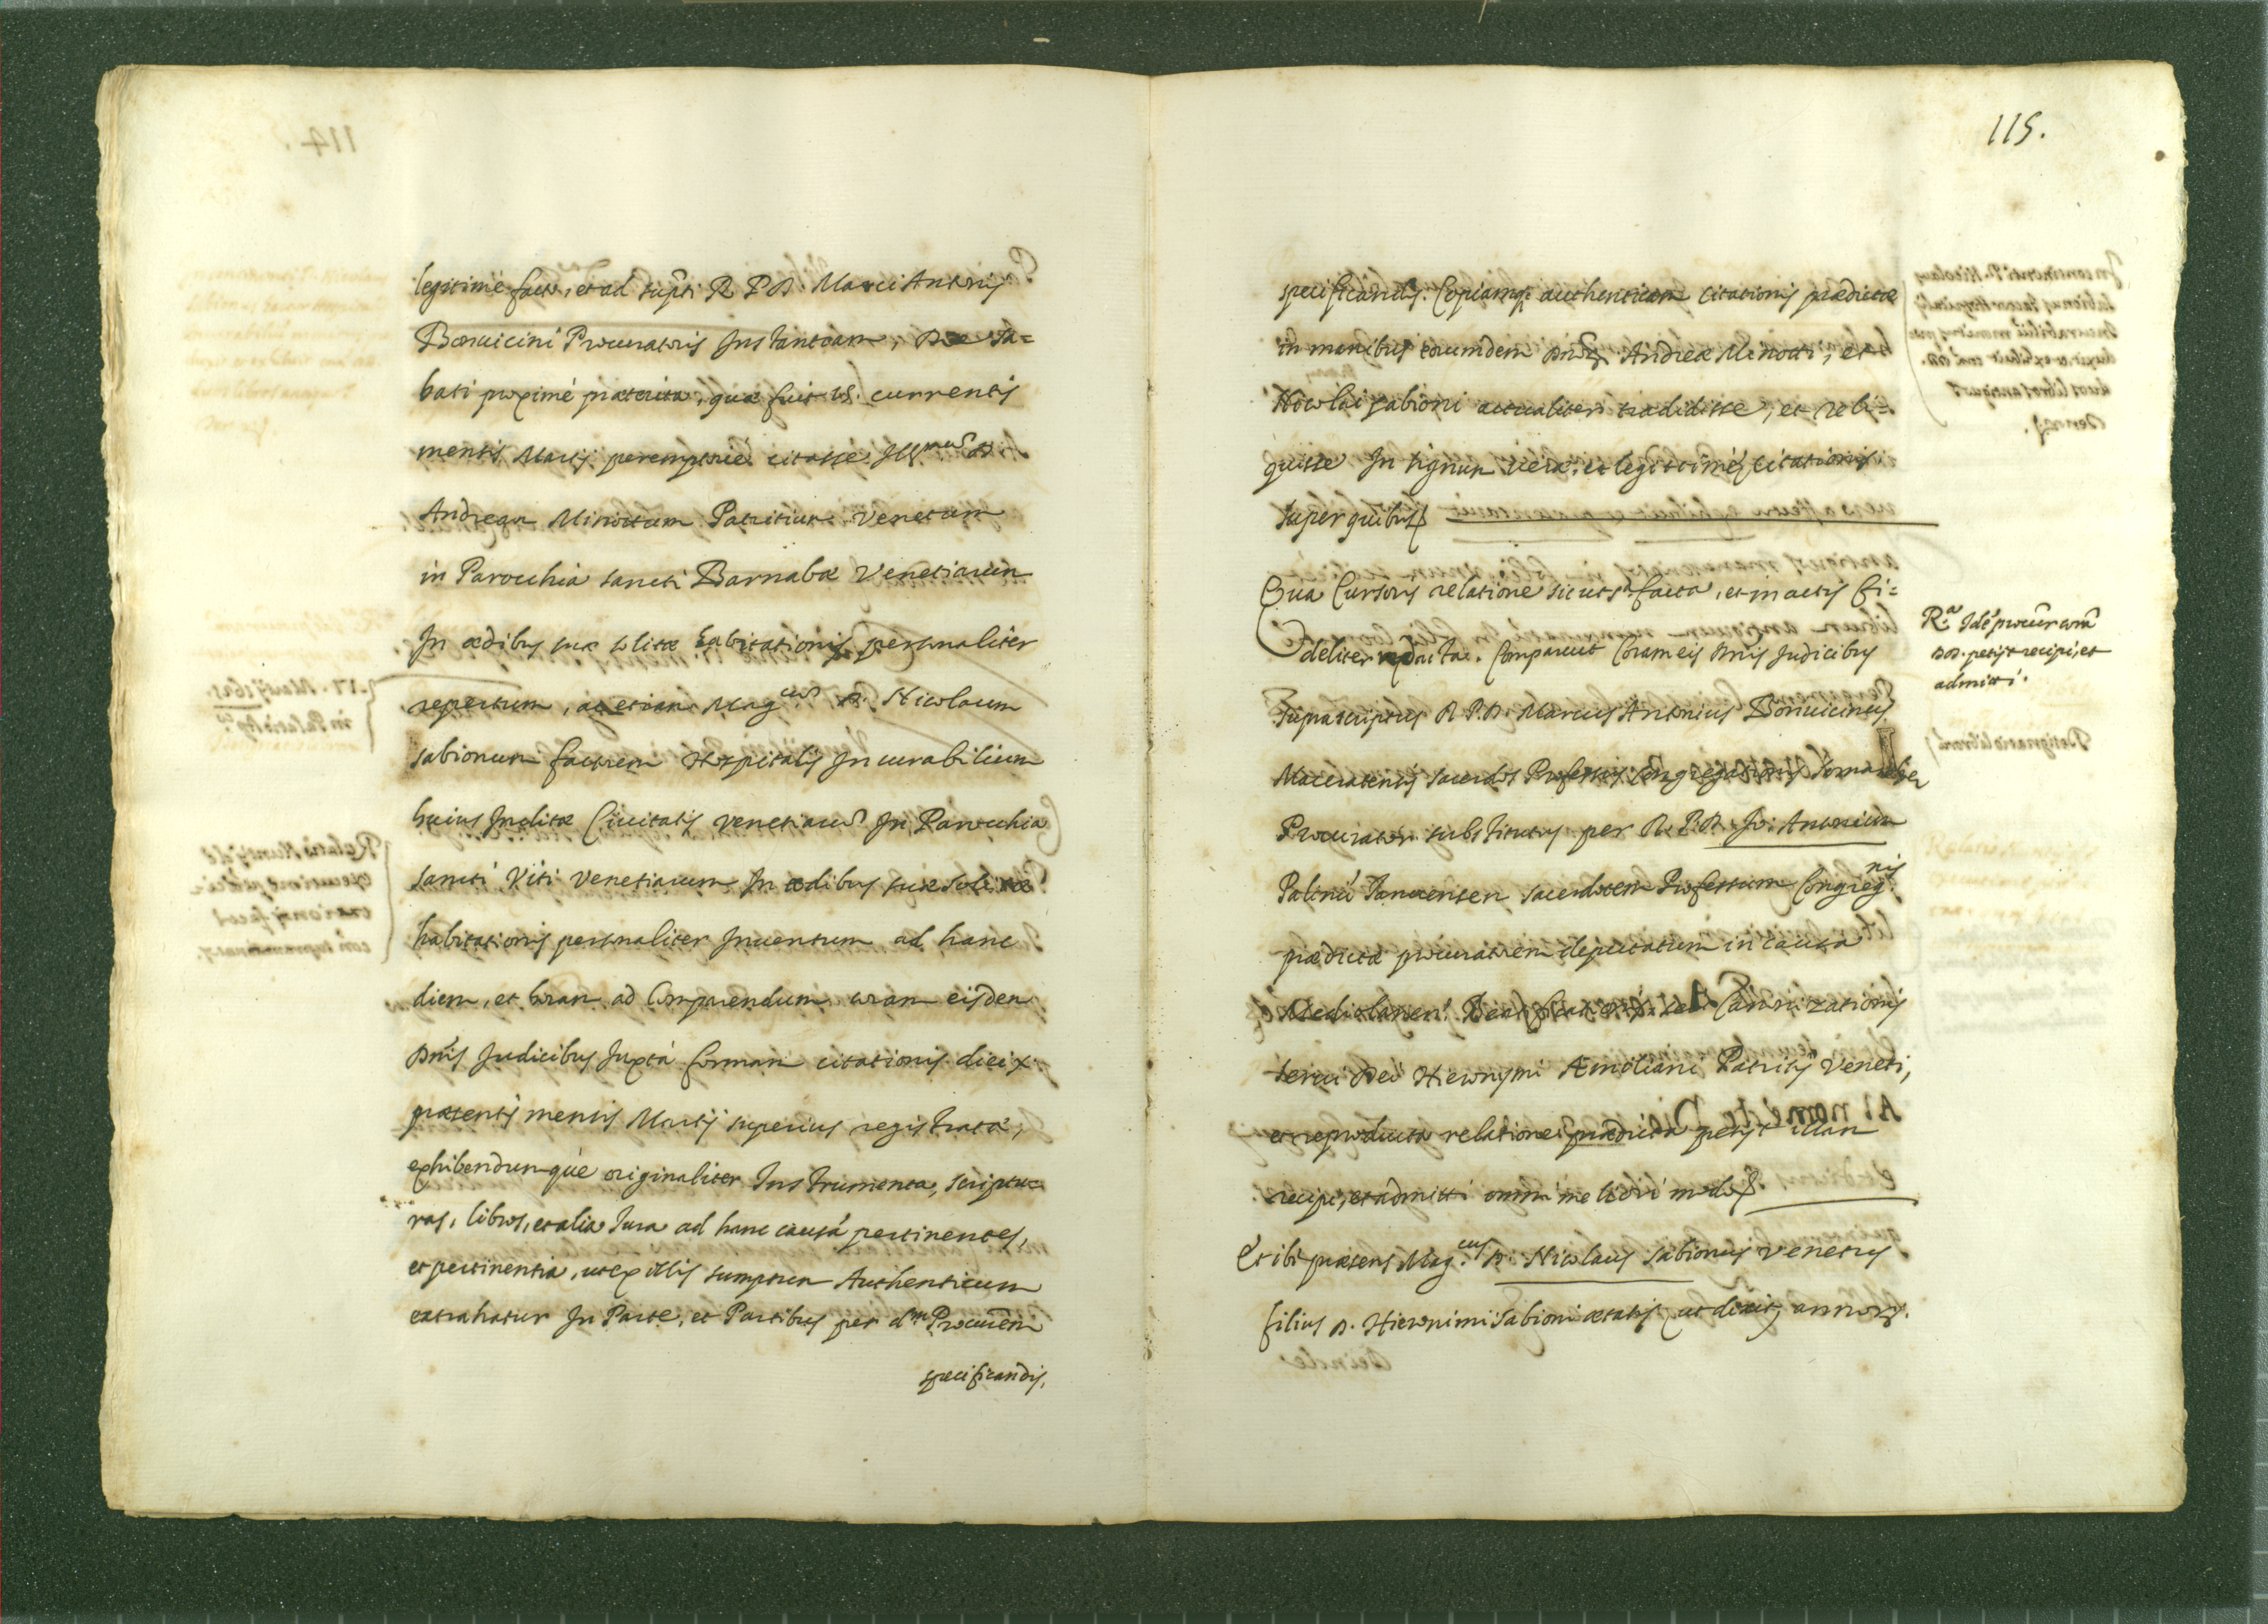 legitimè facta, et ad supti R. P. D. Marci Antonij
Bonuicini Procuratoris Instantiam, Die Sa=
bati proximè praeterita, quae fuit 15. currentis
mensis Martij peremptoriè citasse Illmum D.
Andream Minottum Patritium Venetum
in Parochia Sancti Barnabae Venetiarum
In aedibus suae solitae habitationis personaliter
repertum, ac etiam Magcum D. Nicolaum
Sabionum factorem Hospitalis Incurabilium
huius Inclitae Ciuitatis Venetiarum In Parochia
Sancti Viti Venetiarum In aedibus suae solitae
habitationis personaliter Inuentum ad hanc
diem, et horam ad Comparendum coram eisdem
Dnis Judicibus Juxta formam citationis diei x.
praesentis mensis Martij superius registrata,
exhibendumquè originaliter Instrumenta, scriptu=
ras, libros, et alia Jura ad hanc causã pertinentes,
et pertinentia, ut ex illis sumptum Authenticum
extrahatur In Parte, et Partibus per dm Procurem
specificandis.
115.
specificandis. Copiamq; authenticam citationis praedictae
in manibus eorumdem Dnorum Andreae Minotti, et
Nicolai Sabioni actualiter tradidisse, et reli=
quisse In signum verae, et legittimae citationis
super quibus
Qua Cursoris relatione sicut sa facta, et in actis fi=
deliter redacta. Comparuit Coram eis Dnis Judicibus
suprascriptus R. P. D. Marcus Antonius Bonuicinus
Maceratensis sacerdos Professus Congregationis Somaschae
Procurator substitutus per R. P. D. Jo: Antonium
Palinũ Januensem sacerdotem Professum Congregnis
praedictae procuratorem deputatum in causa
Mediolanen. Beatificationis seu Canonizationis
serui Dei Hieronymi Aemiliani Patritij Veneti,
et reproducta relatione praedicta petijt illam
recipi, et admitti omni meliori modo
Et ibi praesens Mag.cus D. Nicolaus Sabionus Venetus
filius D. Hieronimi Sabioni aetatis (ut dixit) annorum.
Ra. Idẽ procũr corã
DD. petijt recipi, et
admitti.